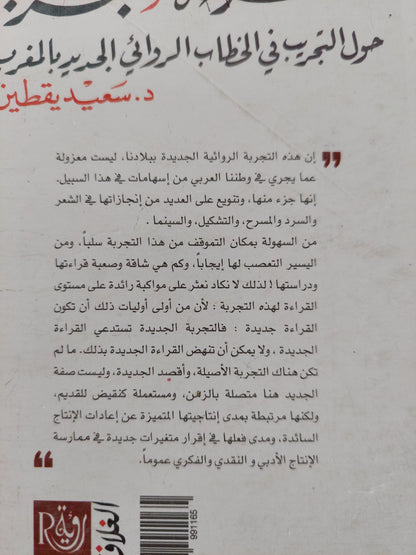 حول التجريب في الخطاب الروائي الجديد بالمغرب
د. سعيد يقطين
إن هذه التجربة الروائية الجديدة ببلادنا، ليست معزولة
عما يجري في وطننا العربي من إسهامات في هذا السبيل.
إنها جزء منها، وتنويع على العديد من إنجازاتها في الشعر
والسرد والمسرح، والتشكيل، والسينما .
من السهولة بمكان التموقف من هذا التجربة سلباً، ومن
اليسير التعصب لها إيجاباً، وكم هي شاقة وصعبة قراءتها
ودراستها ! لذلك لا نكاد نعثر على مواكبة رائدة على مستوى
القراءة لهذه التجربة : لأن من أولى أوليات ذلك أن تكون
القراءة جديدة : فالتجربة الجديدة تستدعي القراءة
الجديدة ، ولا يمكن أن تنهض القراءة الجديدة بذلك. ما لم
تكن هناك التجربة الأصيلة، وأقصد الجديدة، وليست صفة
الجديد هنا متصلة بالزمن، ومستعملة كنقيض للقديم،
ولكنها مرتبطة بمدى إنتاجيتها المتميزة عن إعادات الإنتاج
السائدة، ومدى فعلها في إقرار متغيرات جديدة في ممارسة
الإنتاج الأدبي و النقدي والفكري عموماً.
رؤية
R
الغلاف
991165